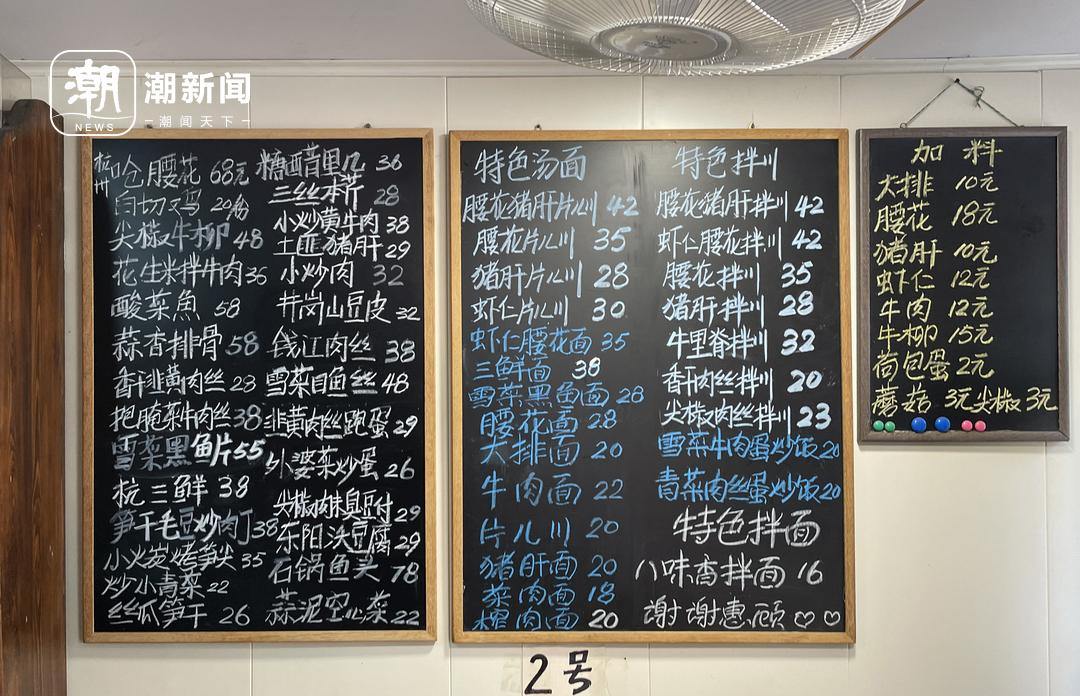 潮
NEWS
潮新闻
潮闻天下
杭州
呛腰花 68元
白切鸡 20份
尖椒牛柳 48
花生米拌牛肉 36
酸菜鱼 58
蒜香排骨 58
香干韭黄肉丝 28
把腌菜牛肉丝 38
雪菜黑鱼片 55
杭三鲜 38
笋干毛豆炒肉丁 38
小火炭烤笋尖 35
炒小青菜 22
丝瓜笋干 26
糖醋里几 36
三丝本芹 28
小炒黄牛肉 38
土匪猪肝 29
小炒肉 32
井岗山豆皮 32
钱江肉丝 38
雪菜目鱼丝 48
韭黄肉丝跑蛋 29
外婆菜炒蛋 26
尖椒肉末臭豆付 29
东阳沃豆腐 29
石锅鱼头 78
蒜泥空心菜 22
特色汤面
腰花猪肝片儿川 42
腰花片儿川 35
猪肝片儿川 28
虾仁片儿川 30
虾仁腰花面 35
三鲜面 38
雪菜黑鱼面 28
腰花面 28
大排面 20
牛肉面 22
片儿川 20
猪肝面 20
菜肉面 18
榨肉面 20
特色拌川
腰花猪肝拌川 42
虾仁腰花拌川 42
腰花拌川 35
猪肝拌川 28
牛里脊拌川 32
香干肉丝拌川 20
尖椒肉丝拌川 23
雪菜牛肉蛋炒饭 20
青菜肉丝蛋炒饭 20
特色拌面
八味香拌面 16
谢谢惠顾
加料
大排 10元
腰花 18元
猪肝 10元
虾仁 12元
牛肉 12元
牛柳 15元
荷包蛋 2元
蘑菇 3元 尖椒 3元
2号